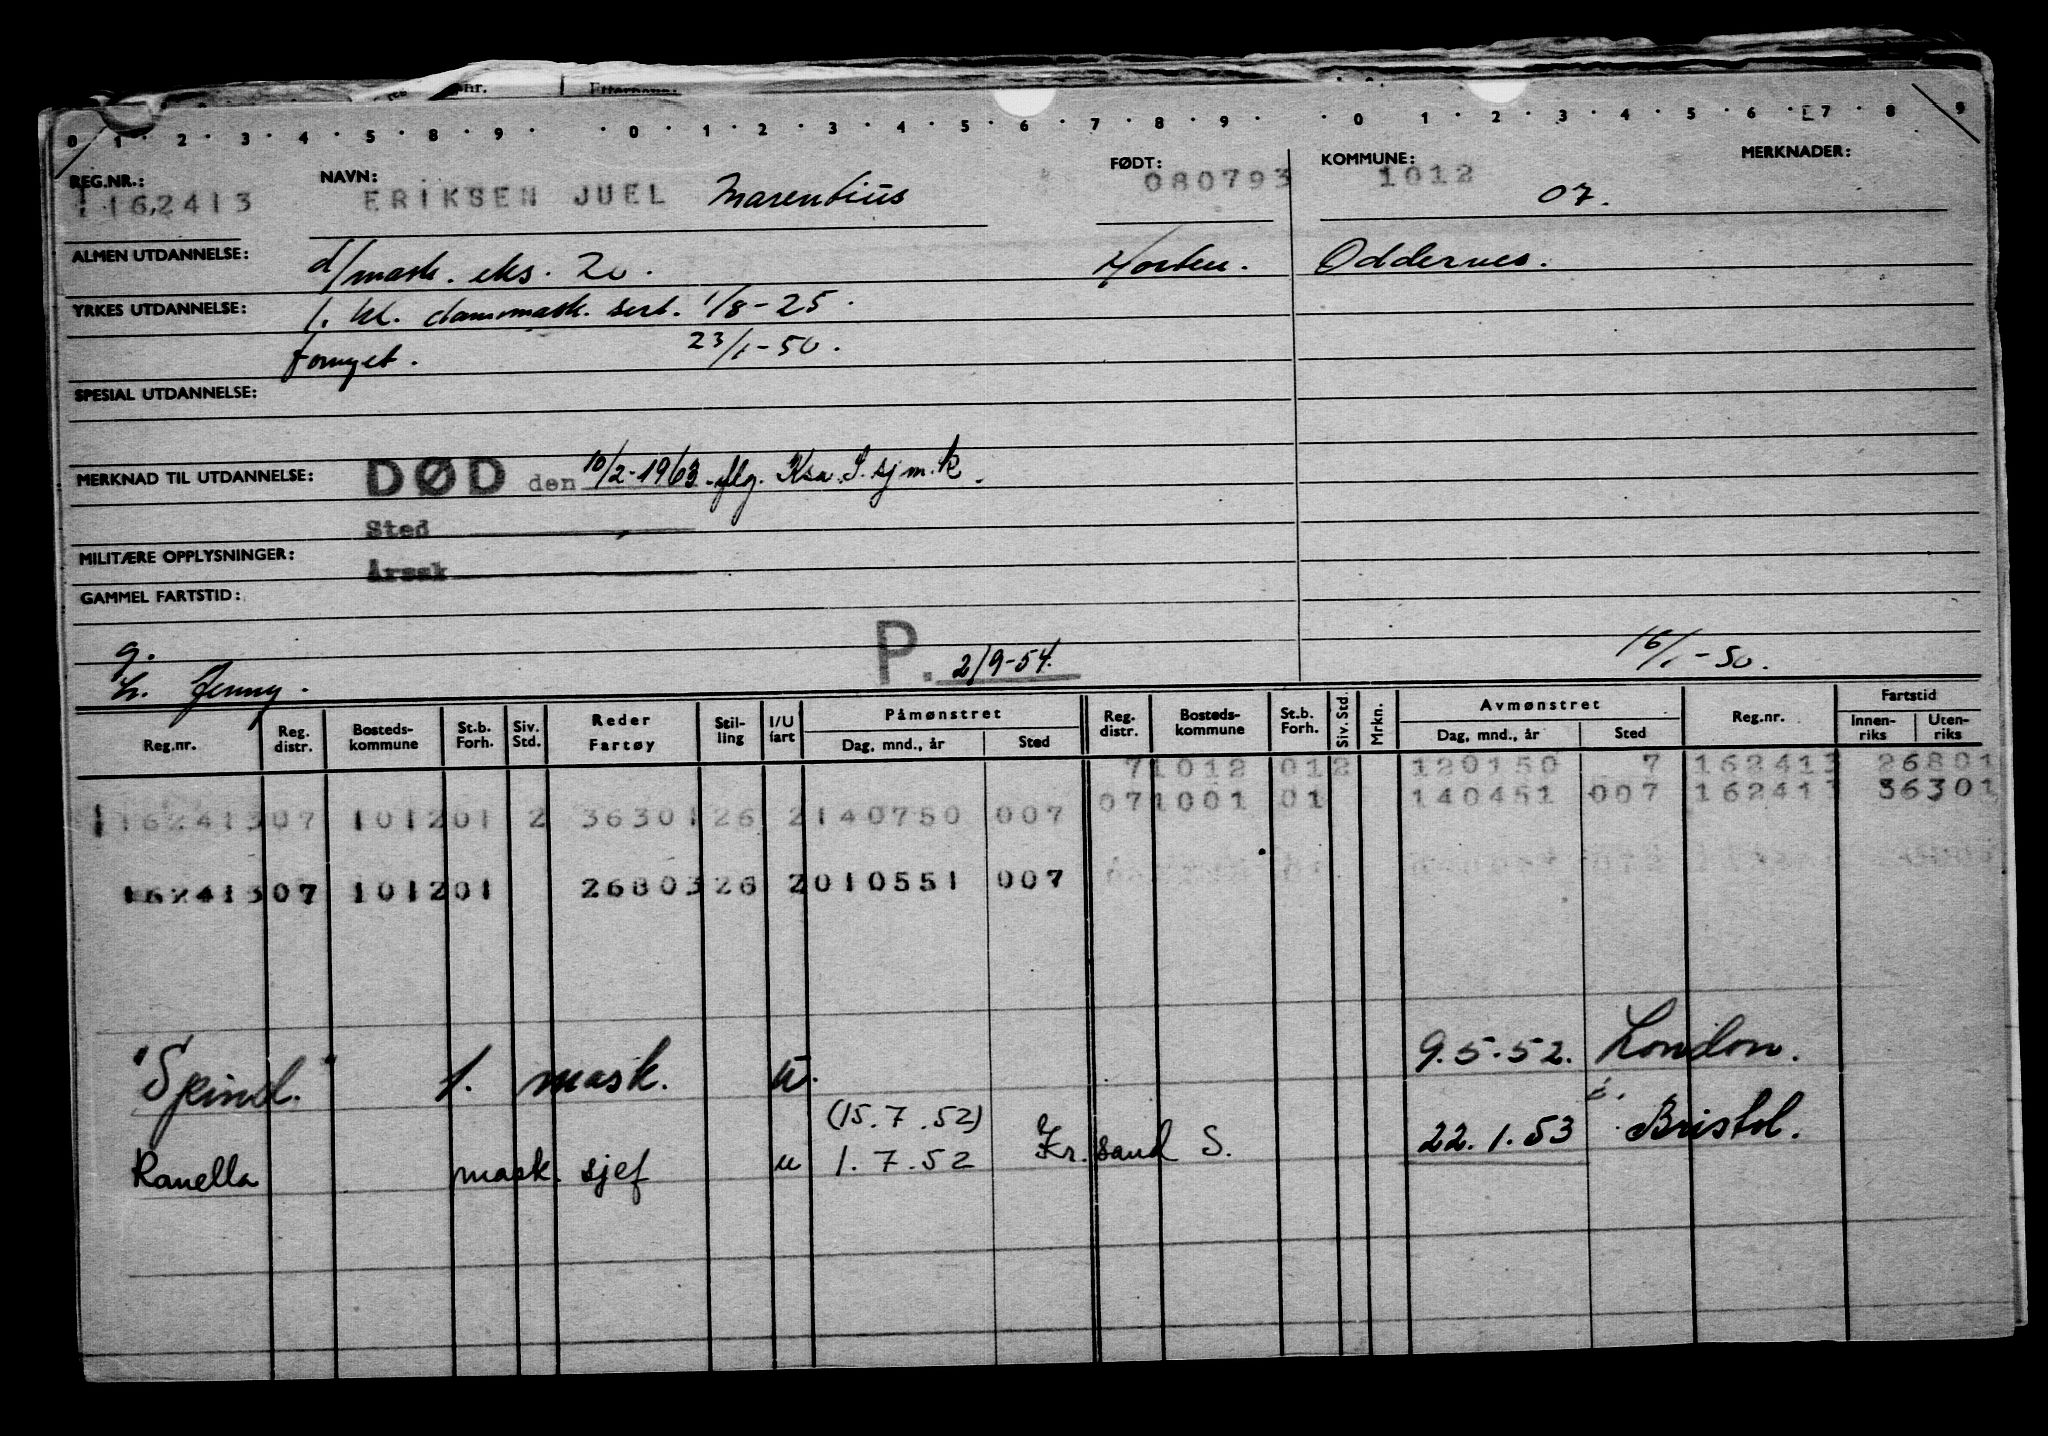 nr. Etternavn:
0 1 2 3 4 5 8 9 0 1 2 3 4 5 6 7 8 9 0 1 2 3 4 5 6 7 8 9
REG.NR.: NAVN: FØDT: KOMMUNE: MERKNADER:
162413 ERIKSEN JUEL Marentius 080793 1012 07.
ALMEN UTDANNELSE: d/mask. eks. 20. Horten. Oddernes.
YRKES UTDANNELSE: 1. kl. dammask. sert. 1/8-25.
Fornyet. 23/1-50.
SPESIAL UTDANNELSE:
MERKNAD TIL UTDANNELSE: DØD den 10/2-1963 flg. Ksa. I. sjm.k.
Sted
MILITÆRE OPPLYSNINGER: Årsak
GAMMEL FARTSTID:
g. P. 2/9-54. 16/1-50.
h. Jenny.
Reg.nr. Reg. distr. Bosteds-kommune St.b. Forh. Siv. Std. Reder Fartøy Stil-ling I/U fart Påmønstret Dag, mnd., år Sted Reg. distr. Bosteds-kommune St.b. Forh. Siv. Std. Mrkn. Avmønstret Dag, mnd., år Sted Reg.nr. Fartstid Innen-riks Uten-riks
7 1012 01 2 120150 7 162413 26801
07 1001 01 140451 007 162413 36301
162413 07 1012 01 2 36301 26 2 140750 007
162413 07 1012 01 26803 26 2 010551 007
"Spind." 1. mask. u. 9.5-52. London.
(15.7.52)
Ranella mask. sjef u 1.7.52 Kr.sand S. 22.1.53 Bristol.